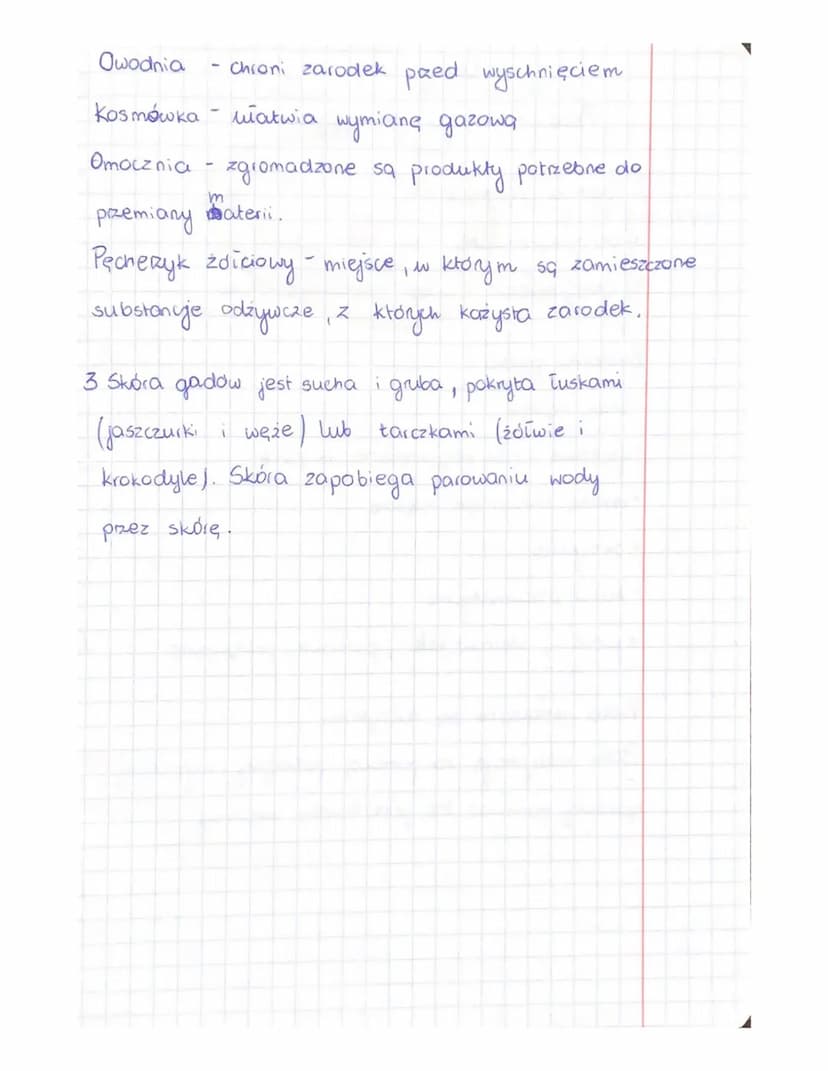 Owodnia - chroni zarodek przed wyschnięciem
Kosmówka - ułatwia wymianę gazową
Omocznia - zgromadzone są produkty potrzebne do
przemiany materii.
Pęcherzyk żółciowy - miejsce, w którym są zamieszczone
substancje odżywcze, z których kożysta zarodek.
3 Skóra gadów jest sucha i gruba, pokryta łuskami
(jaszczurki i węże) lub tarczkami (żółwie i
krokodyle). Skóra zapobiega parowaniu wody
przez skórę.